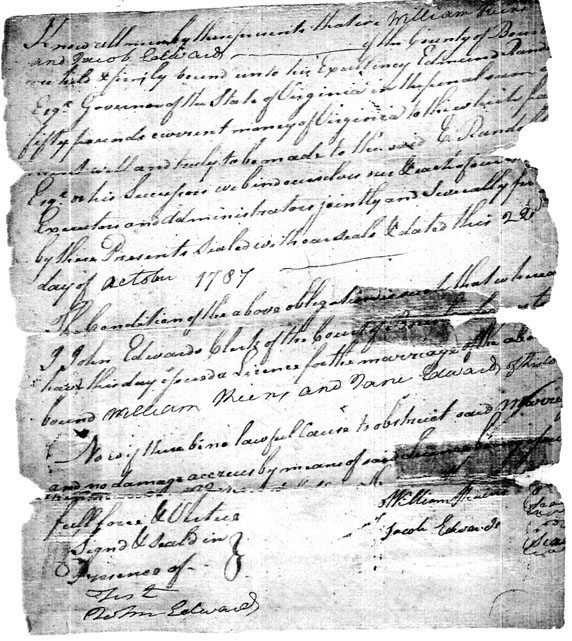 Know all men by these presents that we William
and Jacob Edwards of the County of
are held & firmly bound unto his Excellency Edmund
Esqr. Governor of the State of Virginia in the penal sum
fifty pounds current money of Virginia to the which
ment well and truly to be made to the said E. Rand
Esqr. or his Successors we bind ourselves our & each of our
Executors and administrators jointly and Severally
by these Presents Sealed with our seals & dated this 22
day of October 1787
The Condition of the above obligation is such that whereas
I John Edwards Clerk of the County of
have this day issued a Licence for the marriage of the abo
bound William and Jane Edwards of this Co
Now if there be no lawful Cause to obstruct said Marri
and no damage accrues by means of
full force & Virtue
Signd & Seald in
Presence of
Test
John Edwards
William
Jacob Edwards